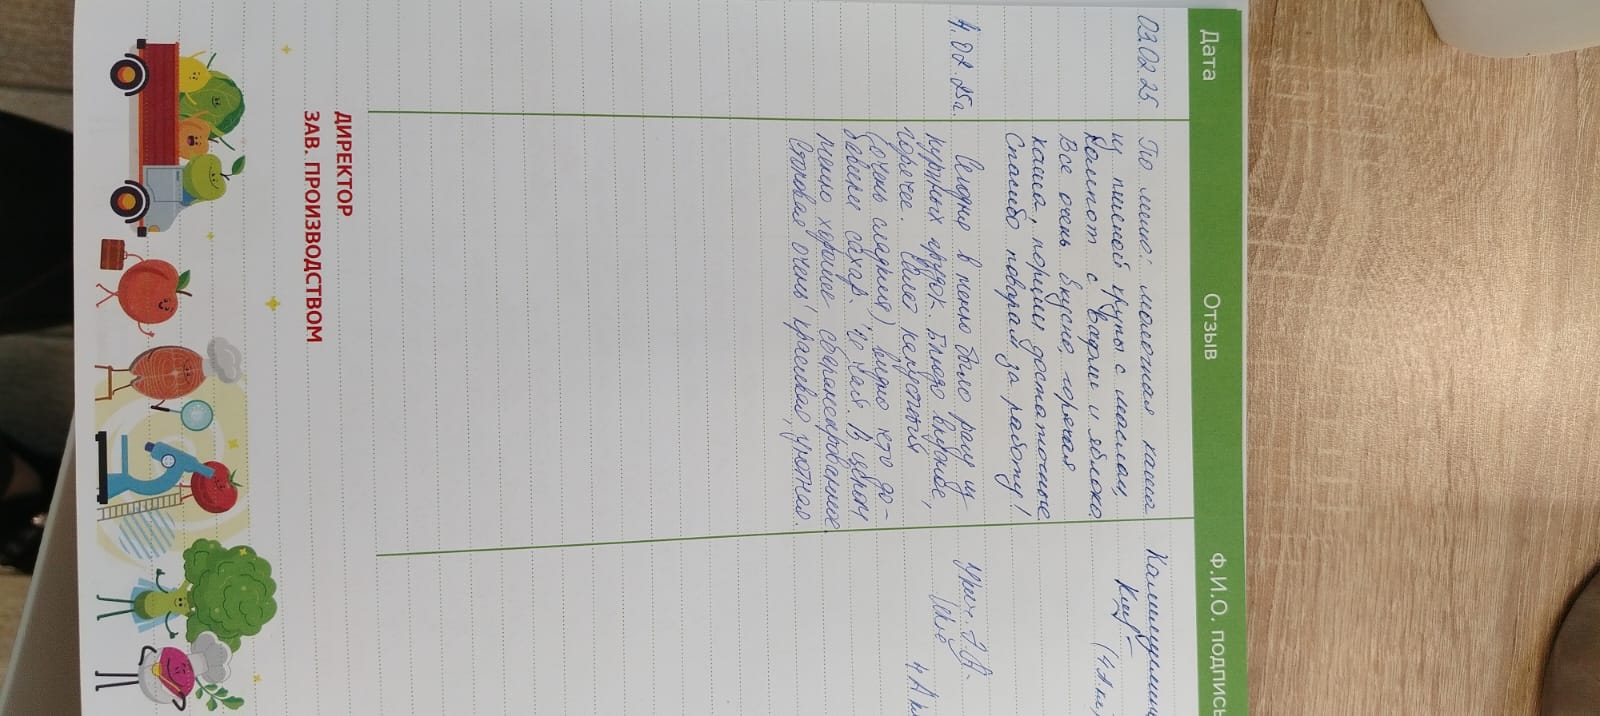 Дата Отзыв Ф.И.О. подпись
03.02.25 По меню: молочная каша
из пшеной крупы с маслом,
Компот с вафли и яблоко
Все очень вкусно, горячая
каша, порции достаточные.
Спасибо поварам за работу!
(4А кл)
4.02.25г. Сегодня в меню было рагу из
куриных грудок. Блюдо вкусное,
горячее. Свёкла
(очень сладкая) видно кто до-
бавил сахар. Чо чая. В целом
меню хорошее сбалансированное
Столовая очень красивая, уютная.
4 А кл
ДИРЕКТОР
ЗАВ. ПРОИЗВОДСТВОМ